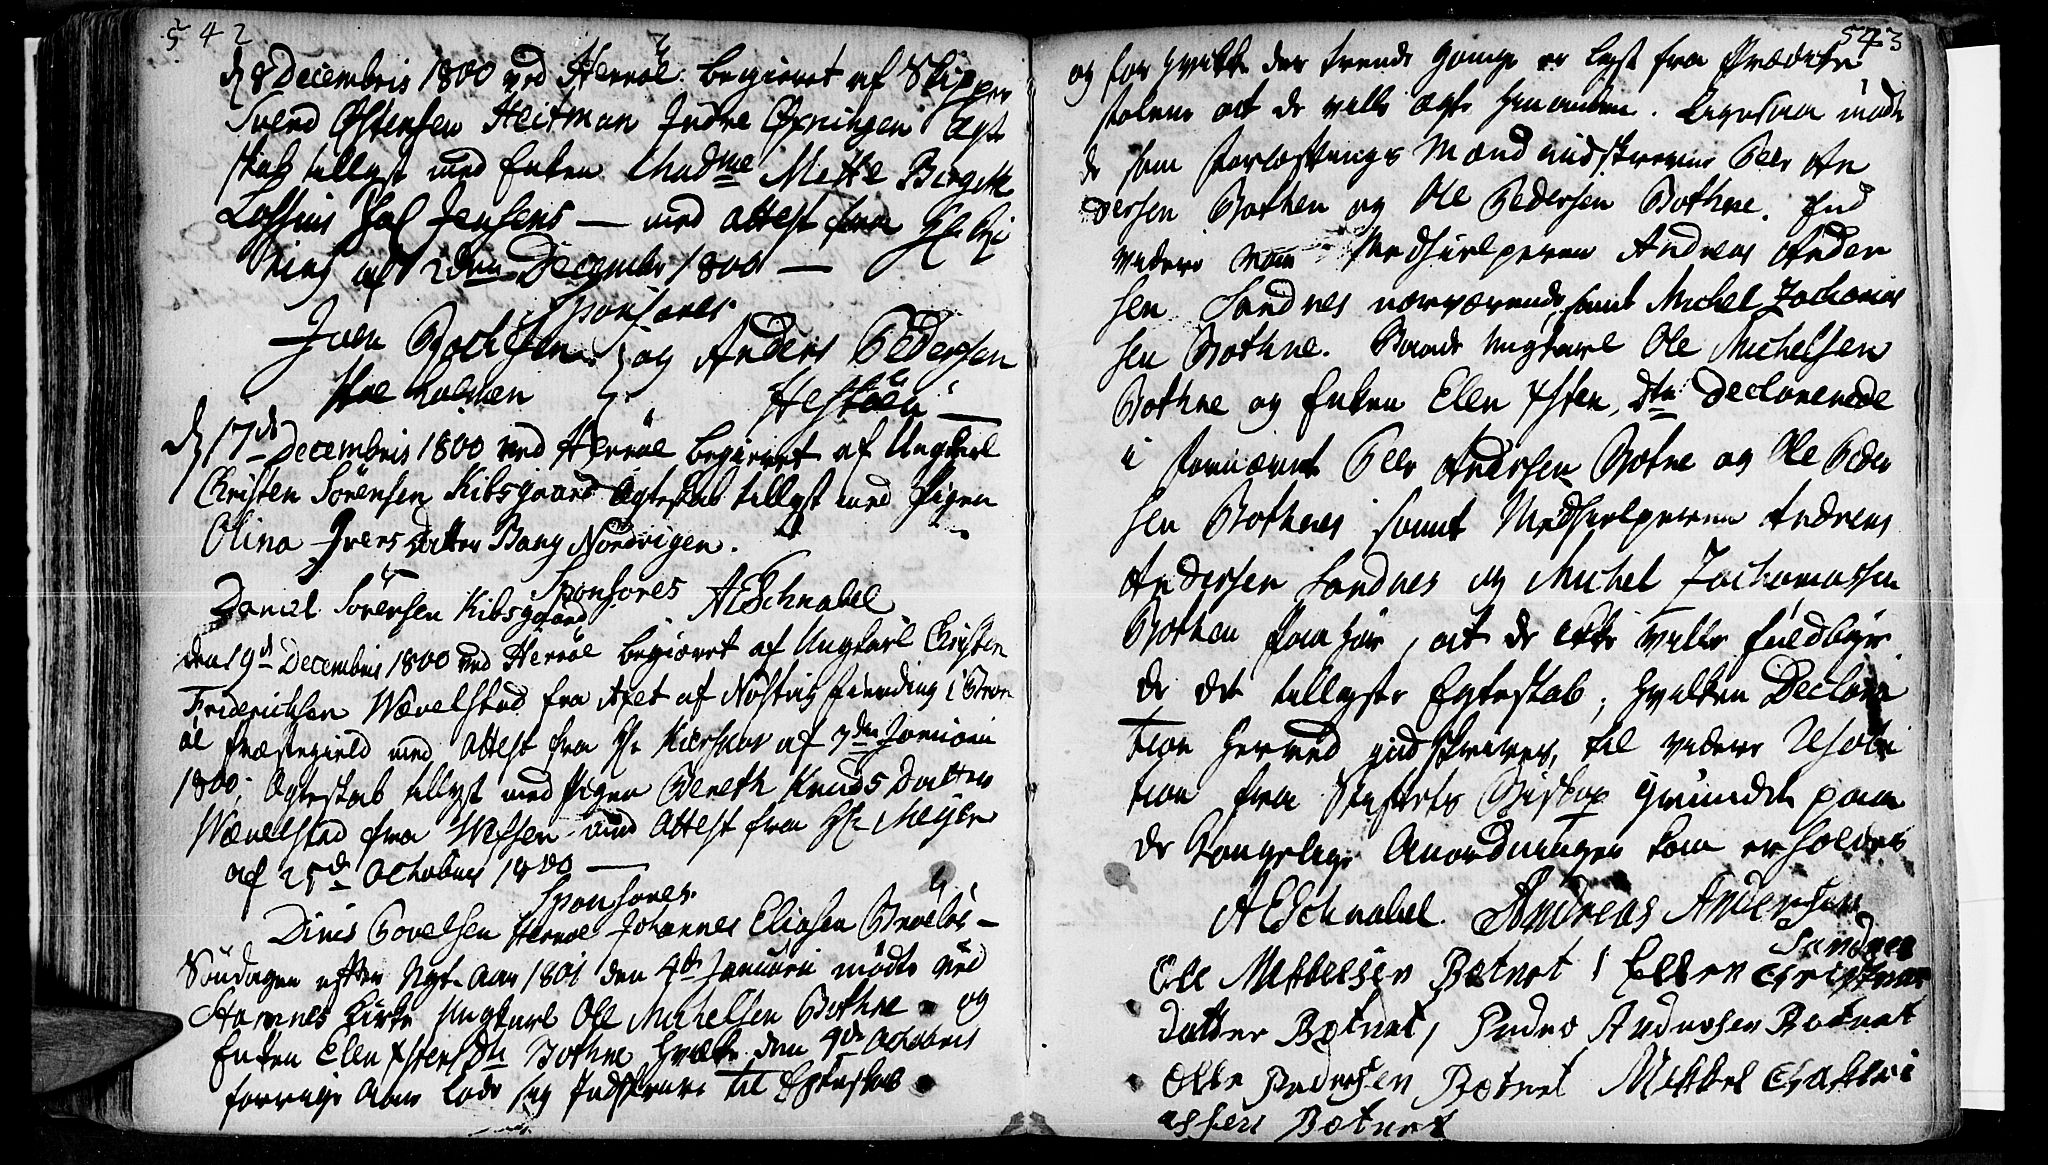 542
d 8 Decembris 1800 ved Herröe begieret af Skipper
Svend Østensen Heitman Indre Øxningen Ægte
skab tillyst med Enken Madme Mette Birgitte
Sal Jensens — med Attest fra Hr
af 2den December 1800 —
Sponsores
Iven og Anders Pedersen
Hestöen —
d 17de Decembris 1800 ved Herröe begieret af Ungkarl
Christen Sörensen Kibsgaard Ægteskab tillyst med Pigen
Olina Ivers Datter Bang Nordvigen.
Sponsores
Daniel Sörensen Kibsgaard AESchnabel
den 19d Decembris 1800 ved Herröe begieret af Ungkarl Christen
Friderichsen Wævelstad fra af Fierding i Brön
öe Præstegield med Attest fra Hr af 7de Januari
1800; Ægteskab tillyst med Pigen Bereth Knuds Datter
Wævelstad fra Wefsen med Attest fra Hr Meyer
af 25de Octobris 1800 —
Sponsores.
Dines Povelsen Herröe Johannes Eliasen —
Söndagen efter Nyt-Aar 1801 den 4de Januarii mödte ved
Stamnes Kirke Ungkarl Ole Michelsen Bothne og
Enken Elen Dtr Bothne hvilke den 9de Octobris
forrige Aar lode sig indskrive til Egteskab
543
og for hvilke der trende gange er lyst fra Prædike
stolen at de ville ægte hinanden. Ligesaa mödte
de som Forlovings Mænd indskrevne Peer An
dersen Bothen og Ole Pedersen Bothne. End
videre var Medhielperen Andreas Ander
sen Sandnes nærværende, samt Michel Zacharias
sen Bothne. Baade Ungkarl Ole Michelsen
Bothne og Enken Elen Dtr declarerede
i fornævnte Peer Andersen Botne og Ole Peder
sen Bothnes samt Medhielperen Andreas
Andersen Sandnes og Michel Zachariassen
Bothen Paahör, at de ikke ville fuldbyr
de det tillyste Egteskab, hvilken Declara
tion herved indskrives, til videre
tion fra Stiftets Biskop grundet paa
de Kongelige Anordninger kan erholdes
AESchnabel. Andreas Andersen
Sandnes
Ole Mekkelsen Botnet Ellen Christens
datter Botnet, Peder Andersen Botnet
Olle Pedersen Botnet Mekkel
assen Botnet